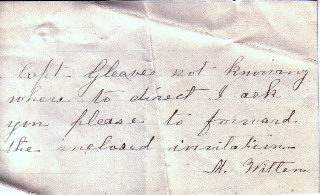 Capt. Gleaves not knowing
where to direct I ask
you please to forward
the enclosed invitation
M. Witten